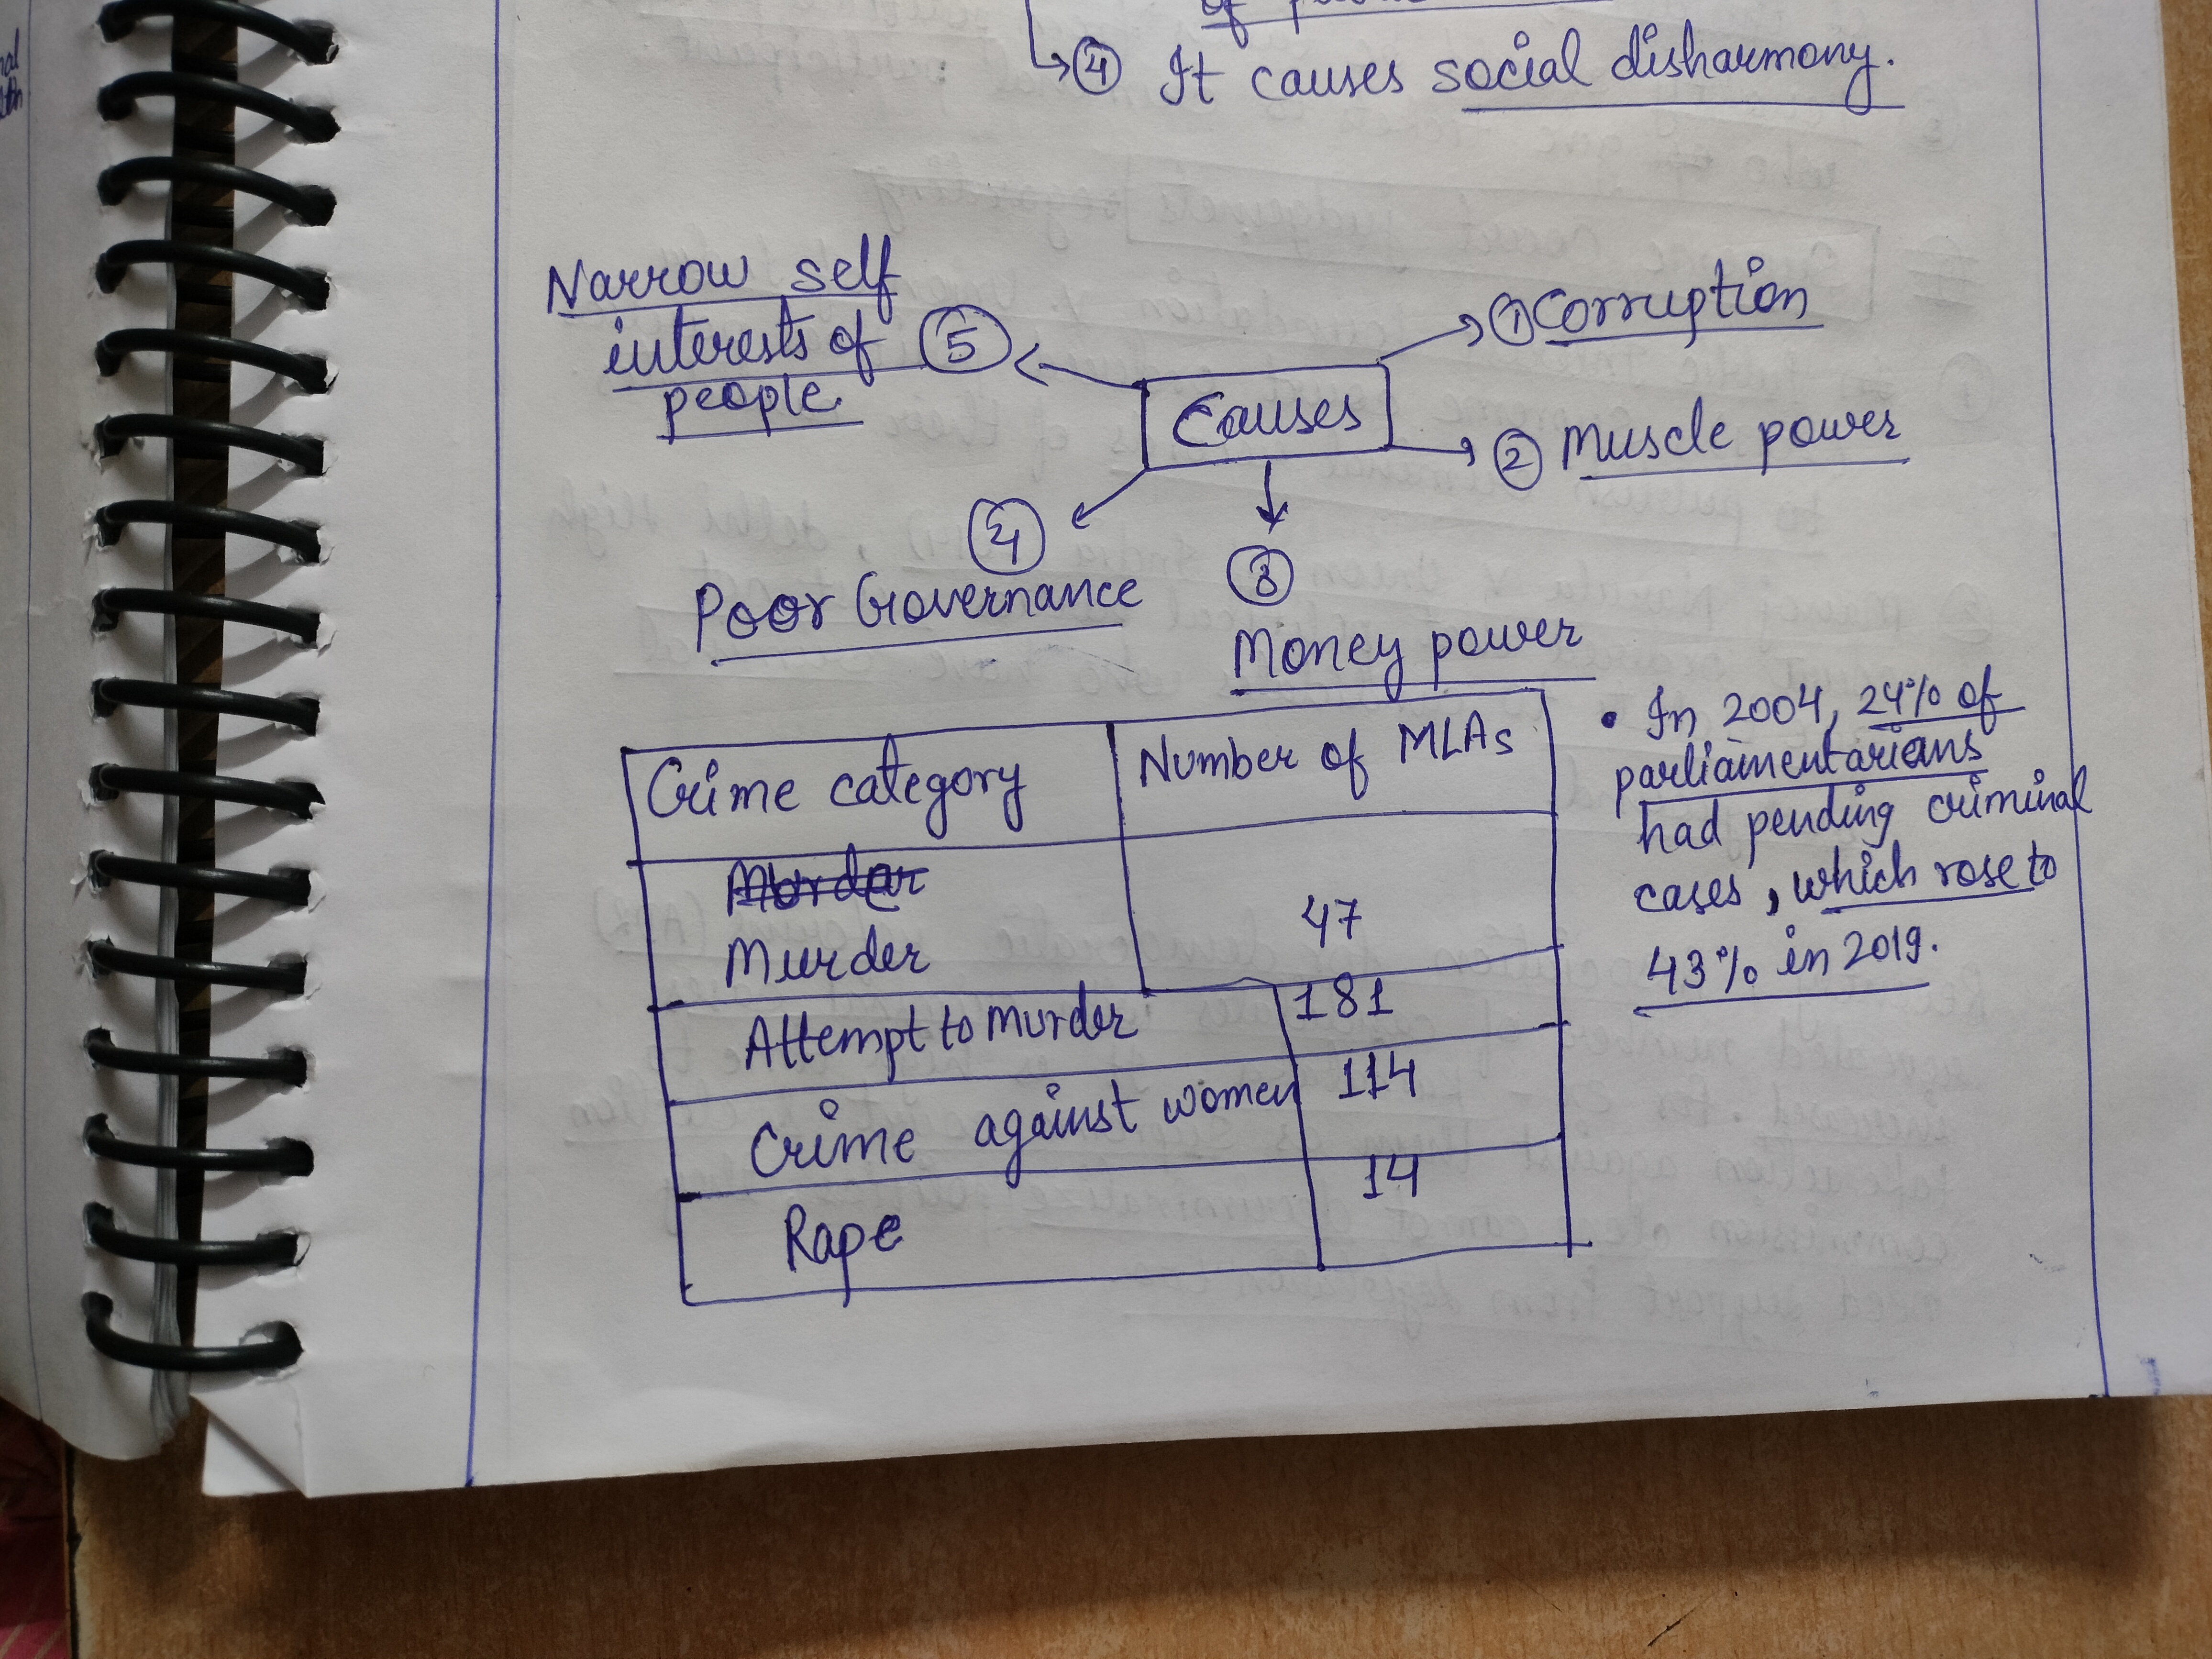 ④ It causes social disharmony.
Narrow self
interests of ⑤
people.
① Corruption
Causes
② Muscle power
④
Poor Governance
③
Money power
Crime category Number of MLAs
Murder 47
Attempt to Murder 181
Crime against women 114
Rape 14
• In 2004, 24% of
parliamentarians
had pending criminal
cases, which rose to
43% in 2019.